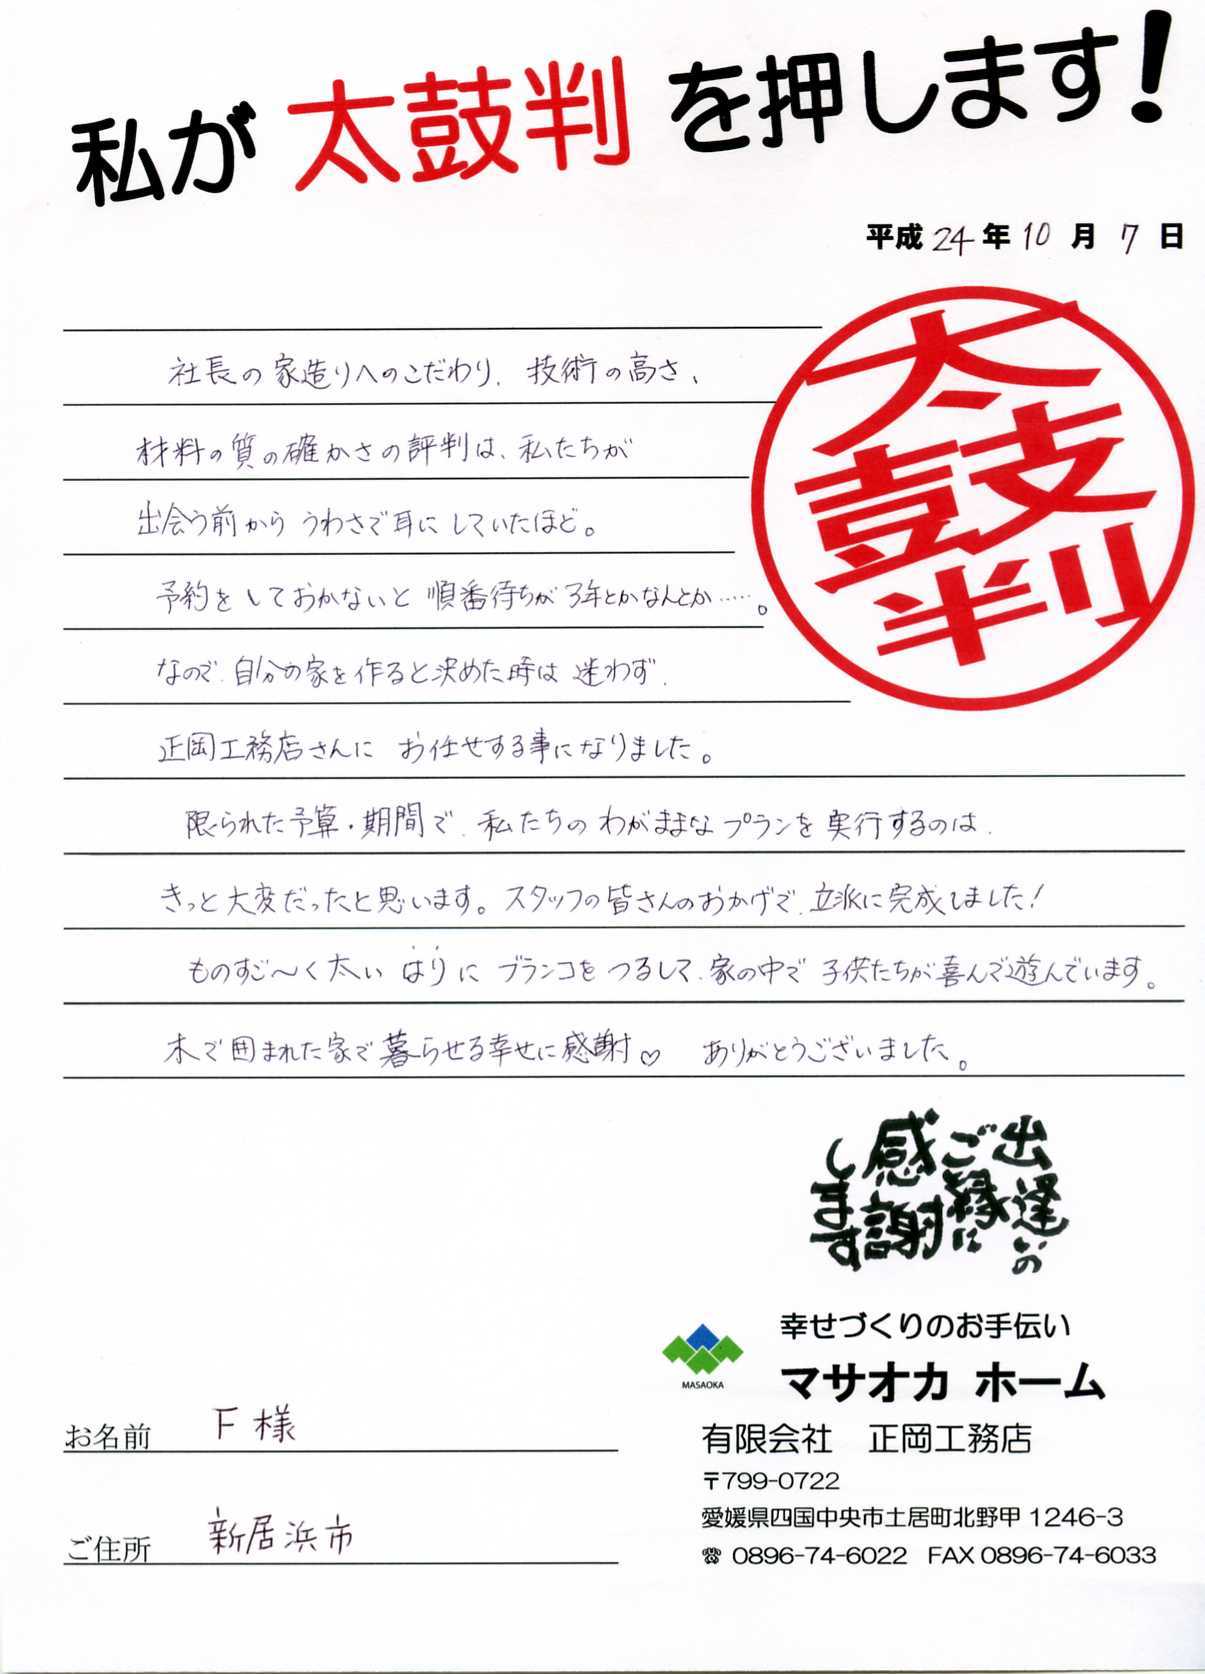 私が太鼓判を押します!
平成24年10月7日
太鼓判
社長の家造りへのこだわり、技術の高さ、
材料の質の確かさの評判は、私たちが
出会う前から うわさで耳に していたほど。
予約をしておかないと 順番待ちが 3年とかなんとか……。
なので、自分の家を作ると決めた時は 迷わず、
正岡工務店さんに お任せする事になりました。
限られた予算・期間で、私たちの わがままな プランを 実行するのは、
きっと大変だったと思います。スタッフの皆さんのおかげで、立派に完成しました!
ものすご〜く太い はり に ブランコを つるして、家の中で 子供たちが喜んで遊んでいます。
木で囲まれた家で暮らせる幸せに感謝♡ ありがとうございました。
出逢いの
ご縁に
感謝
します
幸せづくりのお手伝い
MASAOKA
マサオカ ホーム
有限会社 正岡工務店
〒799-0722
愛媛県四国中央市土居町北野甲1246-3
☎ 0896-74-6022 FAX 0896-74-6033
お名前 F様
ご住所 新居浜市